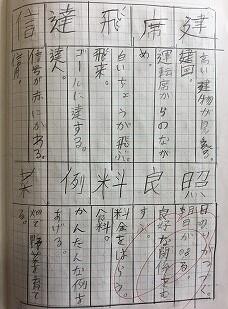 建
高い建物が見える。
建国。
席
運転席からのなが
め。
飛
白いちょうが飛ぶ。
飛来。
達
ゴールに達する。
達人。
信
信号が赤にかわる。
信用。
照
良
良好な関係をむ
料
料金をはらう。
食料。
例
かんたんな例を
あげる。
菜
畑で野菜を育て
る。